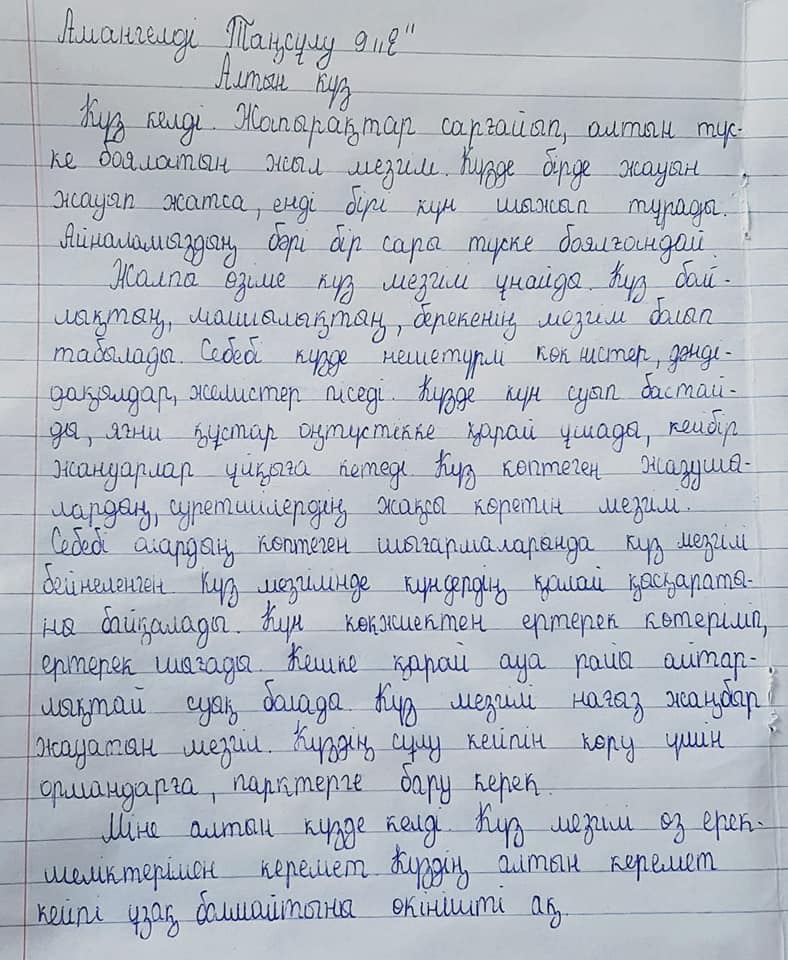 Амангелді Таңсұлу 9 "Е"
Алтын күз
Күз келді. Жапырақтар сарғайып, алтын түс-
ке боялатын жыл мезгілі. Күзде бірде жауын
жауып жатса, енді бірі күн шыжып тұрады.
Айналамыздың бәрі бір сары түске боялғандай.
Жалпы өзіме күз мезгілі ұнайды. Күз бай-
лықтың, молшылықтың, берекенің мезгілі болып
табылады. Себебі күзде нешетүрлі көкөністер, дәнді-
дақылдар, жемістер піседі. Күзде күн суып бастай-
ды, яғни құстар оңтүстікке қарай ұшады, кейбір
жануарлар ұйқыға кетеді. Күз көптеген жазушы-
лардың, суретшілердің жақсы көретін мезгілі.
Себебі олардың көптеген шығармаларында күз мезгілі
бейнеленген. Күз мезгілінде күндердің қалай қысқараты-
ны байқалады. Күн көкжиектен ертерек көтеріліп,
ертерек шығады. Кешке қарай ауа райы айтар-
лықтай суық болады. Күз мезгілі нағыз жаңбыр
жауатын мезгіл. Күздің сұлу кейпін көру үшін
ормандарға, парктерге бару керек.
Міне алтын күзде келді. Күз мезгілі өз ерек-
шеліктерімен керемет. Күздің алтын керемет
кейпі ұзақ болмайтыны өкінішті ақ.